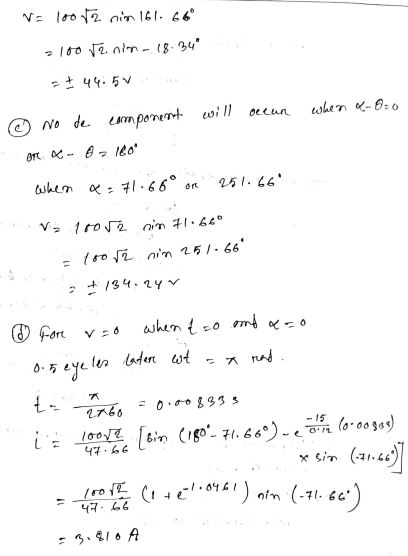 v = 100√2 sin 161.66°
= 100√2 sin - 18.34°
= ± 44.5 v
(c) No dc component will occur when α-θ=0
or α - θ = 180°
when α = 71.66° or 251.66°
v = 100√2 sin 71.66°
= 100√2 sin 251.66°
= ± 134.24 v
(d) For v=0 when t=0 and α=0
0.5 cycles later ωt = π rad.
t = π / 2π60 = 0.00833 s
i = 100√2 / 47.66 [sin (180° - 71.66°) - e^(-15/0.12 (0.00833))
× sin (-71.66°)]
= 100√2 / 47.66 (1 + e^-1.0461) sin (-71.66°)
= 3.810 A